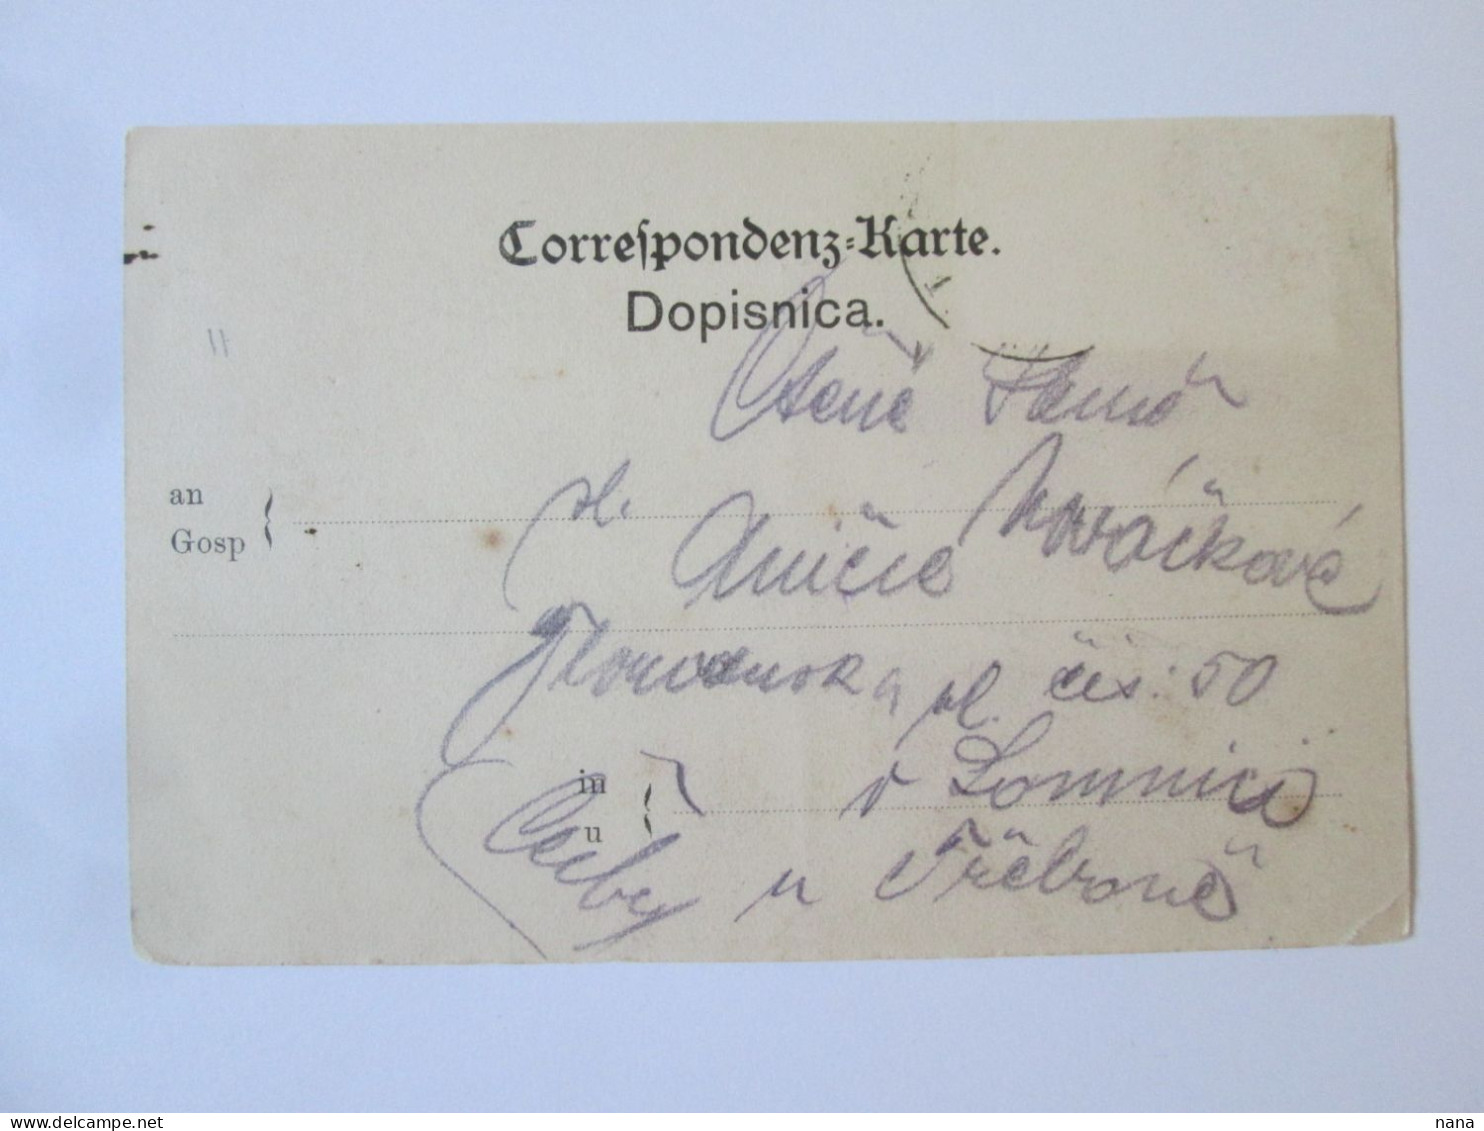 Correſpondenz-Karte.
Dopisnica.
Ctěné
sl. Aničce Nováčkové
an
Gosp
pl. čís: 50
in
u
v Lomnici
Čechy u Třeboně
nana
delcampe.net